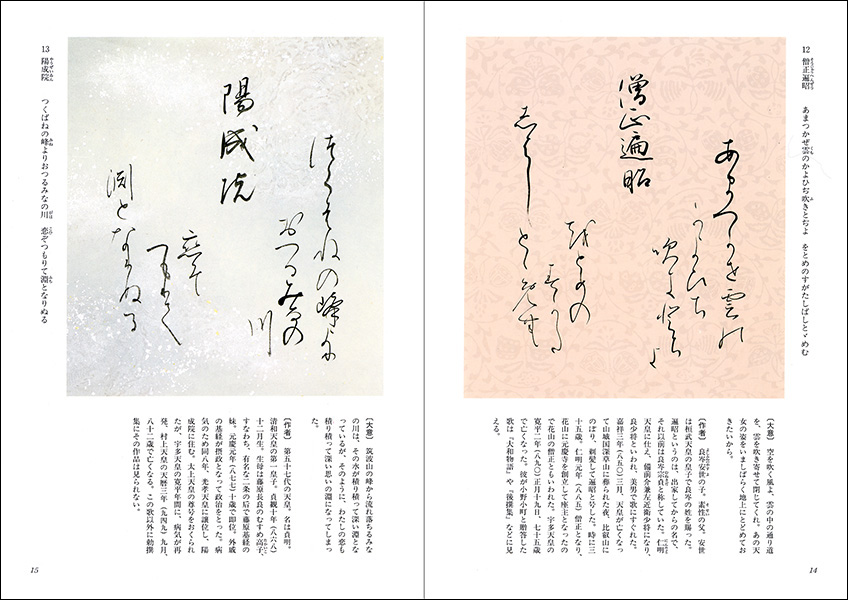 12 僧正遍昭 あまつかぜ雲のかよひぢ吹きとぢよ をとめのすがたしばしとゞめむ
僧正遍昭
〔大意〕 空を吹く風よ、雲の中の通り道
を、雲を吹き寄せて閉じてくれ。あの天
女の姿をいましばらく地上にとどめてお
きたいから。
〔作者〕 良岑安世の子。素性の父。安世
は桓武天皇の皇子で良岑の姓を賜った。
遍昭というのは、出家してからの名で、
それ以前は良岑宗貞と称していた。仁明
天皇に仕え、備前介兼左近衛少将になり、
良少将といわれ、美男で歌にすぐれた。
嘉祥三年（八五〇）三月、天皇が亡くなっ
て山城国深草山に葬られた夜、比叡山に
のぼり、剃髪して遍昭と号した。時に三
十五歳。仁明元年（八八五）僧正となり、
花山に元慶寺を創立して座主となったの
で花山の僧正ともいわれた。宇多天皇の
寛平二年（八九〇）正月十九日、七十五歳
で亡くなった。彼が小野小町と贈答した
歌は『大和物語』や『後撰集』などに見
える。
14
13 陽成院 つくばねの峰よりおつるみなの川 恋ぞつもりて淵となりぬる
陽成院
〔大意〕 筑波山の峰から流れ落ちるみな
の川は、その水が積り積って深い淵とな
っているが、そのように、わたしの恋も
積り積って深い思いの淵になってしまっ
た。
〔作者〕 第五十七代の天皇。名は貞明。
清和天皇の第一皇子。貞観十年（八六八）
十二月生。生母は藤原長良のむすめ高子、
すなわち、有名な二条の后で藤原基経の
妹。元慶元年（八七七）十歳で即位。外戚
の基経が摂政となって政治をとった。病
気のため同八年、光孝天皇に譲位し、陽
成院に住む。太上天皇の尊号をおくられ
たが、宇多天皇の寛平年間に、病気が再
発、村上天皇の天暦三年（九四九）九月、
八十二歳で亡くなる。この歌以外に勅撰
集にその作品は見られない。
15